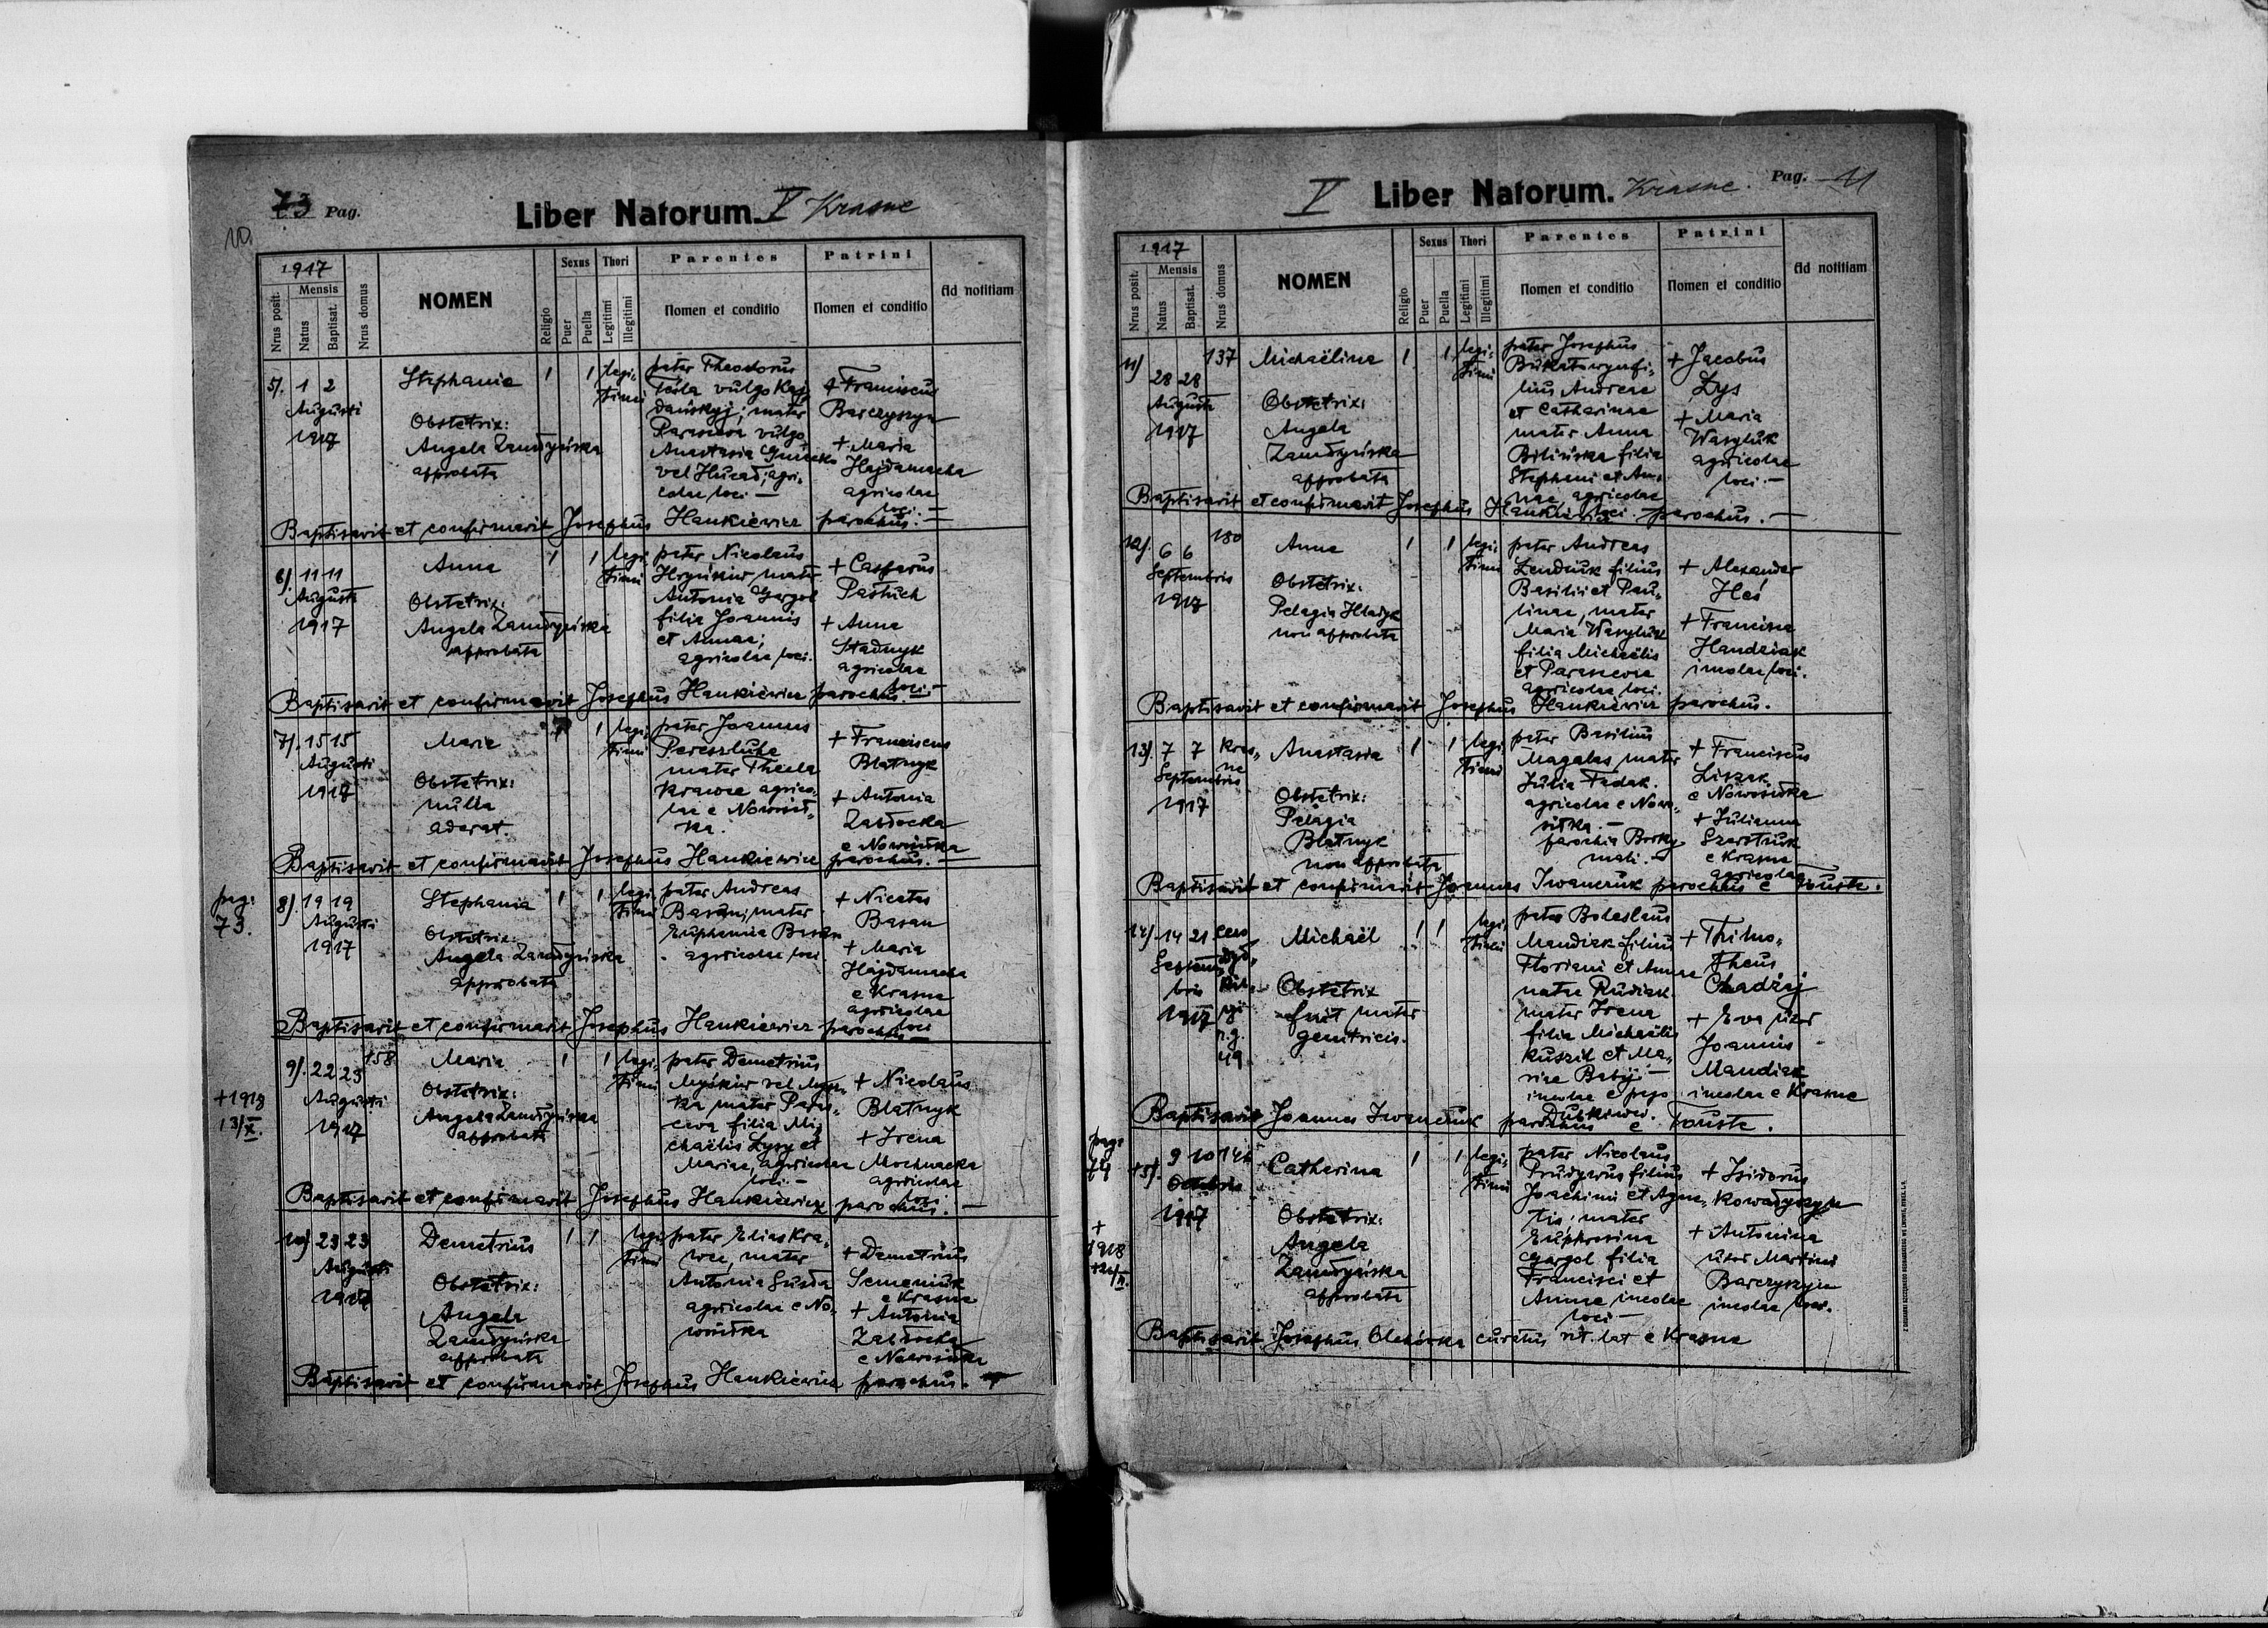 73 Pag.
10.
Liber Natorum. V Krasne
1917
Nrus posit.
Mensis
Natus
Baptisat.
Nrus domus
NOMEN
Religio
Sexus
Puer
Puella
Thori
Legitimi
Illegitimi
Parentes
Nomen et conditio
Patrini
Nomen et conditio
Ad notitiam
5). 1 2
Augusti
1917
Stephania
Obstetrix:
Angela Zamdyńska
approbata
1 1 legi-
timi
pater Theodorus
Tesla vulgo Kaj-
dańskyj; mater
Parasceva vulgo
Anastasia
vel Hucad; agri-
colae loci —
+ Franciscus
Barczyszyn
+ Maria
Hajdamacha
agricolae
loci. —
Baptisavit et confirmavit Josephus Hankiewicz parochus. —
6). 11 11
Augusti
1917
Anna
Obstetrix:
Angela Zamdyńska
approbata
1 1 legi-
timi
pater Nicolaus
Hryńkiw mater
Antonia Gargol
filia Joannis
et Annae;
agricolae loci.
+ Casparus
Pastuch
+ Anna
Stadnyk
agricolae
loci —
Baptisavit et confirmavit Josephus Hankiewicz parochus. —
7). 15 15
Augusti
1917
Maria
Obstetrix:
nulla
aderat.
1 legi-
timi
pater Joannes
Pereszluha
mater Thecla
Krawec agrico-
lae e Nowosiół-
ka.
+ Franciscus
Blatnyk
+ Antonia
Zabłocka
e Nowosiółka
Baptisavit et confirmavit Josephus Hankiewicz parochus. —
pag:
73.
8). 19 19
Augusti
1917
Stephania
Obstetrix:
Angela Zamdyńska
approbata
1 1 legi-
timi
pater Andreas
Basan; mater
Euphemia Basan
agricolae loci
+ Nicetas
Basan
+ Maria
Hajdamacha
e Krasne
agricolae
loci
Baptisavit et confirmavit Josephus Hankiewicz parochus —
+1918
13/X.
9). 22 23
Augusti
1917
158
Maria
Obstetrix:
Angela Zamdyńska
approbata
1 1 legi-
timi
pater Demetrius
Myśkiw vel Mys-
ka mater Paras-
ceva filia Mi-
chaëlis Lysy et
Mariae, agricolae
loci —
+ Nicolaus
Blatnyk
+ Irena
Mochnacka
agricolae
loci.
Baptisavit et confirmavit Josephus Hankiewicz parochus. —
10) 23 23
Augusti
1917
Demetrius
Obstetrix:
Angela
Zamdyńska
approbata
1 1 legi-
timi
pater Elias Kra-
wec, mater
Antonia Susda
agricolae e No-
wosiółka
+ Demetrius
Semeniuk
e Krasne
+ Antonia
Zabłocka
e Nowosiółka
Baptisavit et confirmavit Josephus Hankiewicz parochus. —
V Liber Natorum. Krasne. Pag. 11
1917
Nrus posit.
Mensis
Natus
Baptisat.
Nrus domus
NOMEN
Religio
Sexus
Puer
Puella
Thori
Legitimi
Illegitimi
Parentes
Nomen et conditio
Patrini
Nomen et conditio
Ad notitiam
11)
28 28
Augusti
1917
137
Michaëlina
Obstetrix:
Angela
Zamdyńska
approbata
1 1 legi-
timi
pater Josephus
Bukatczyn fi-
lius Andreae
et Catharinae
mater Anna
Bilińska filia
Stephani et An-
nae, agricolae
loci.
+ Jacobus
Lys
+ Maria
Wasyluk
agricolae
loci. —
Baptisavit et confirmavit Josephus Hankiewicz parochus. —
12). 6 6
Septembris
1917
180
Anna
Obstetrix:
Pelagia Hladyk
non approbata
1 1 legi-
timi
pater Andreas
Lendiuk filius
Basilii et Pau-
linae, mater
Maria Wasyluk
filia Michaëlis
et Parascevia
agricolae loci.
+ Alexander
Heś
+ Francisca
Handziak
incolae loci.
Baptisavit et confirmavit Josephus Hankiewicz parochus.
13). 7 7
Septembris
1917
Kras-
ne
Anastasia
Obstetrix:
Pelagia
Blatnyk
non approbata
1 1 legi-
timi
pater Basilius
Magalas mater
Julia Fedak.
agricolae e Nowo-
siółka. —
parochia Borky
mali. —
+ Franciscus
Liszak
e Nowosiółka
+ Julianna
Szerotiuk
e Krasne
agricolae
Baptisavit et confirmavit Joannes Iwanczuk parochus e Touste.
14) 14 21
Septem-
bris
1917
Michaël
Obstetrix
fuit mater
genitricis.
1 1 legi-
timi
pater Boleslaus
Mandiak filius
Floriani et Annae
natae Rudiak.
mater Irena
filia Michaëlis
Kuszil et Ma-
riae Babij —
incolae e pago
Dubkiwci.
+ Thimo-
theus
Chadżaj
+ Eva uxor
Joannis
Mandiak
incolae e Krasne
Baptisavit Joannes Iwanczuk parochus e Touste.
pag:
74
+
1918
+26/II.
15). 9 10 142
Octobris
1917
Catharina
Obstetrix:
Angela
Zamdyńska
approbata
1 1 legi-
timi
pater Nicolaus
Prudywus filius
Joachimi et Agne-
tis; mater
Euphrosina
Gargol filia
Francisci et
Annae incolae
loci —
+ Isidorus
Kowadyszyn
+ Antonina
uxor Martini
Barczyszyn
incolae loci.
Baptisavit Josephus Olehówka curatus rit. lat e Krasne